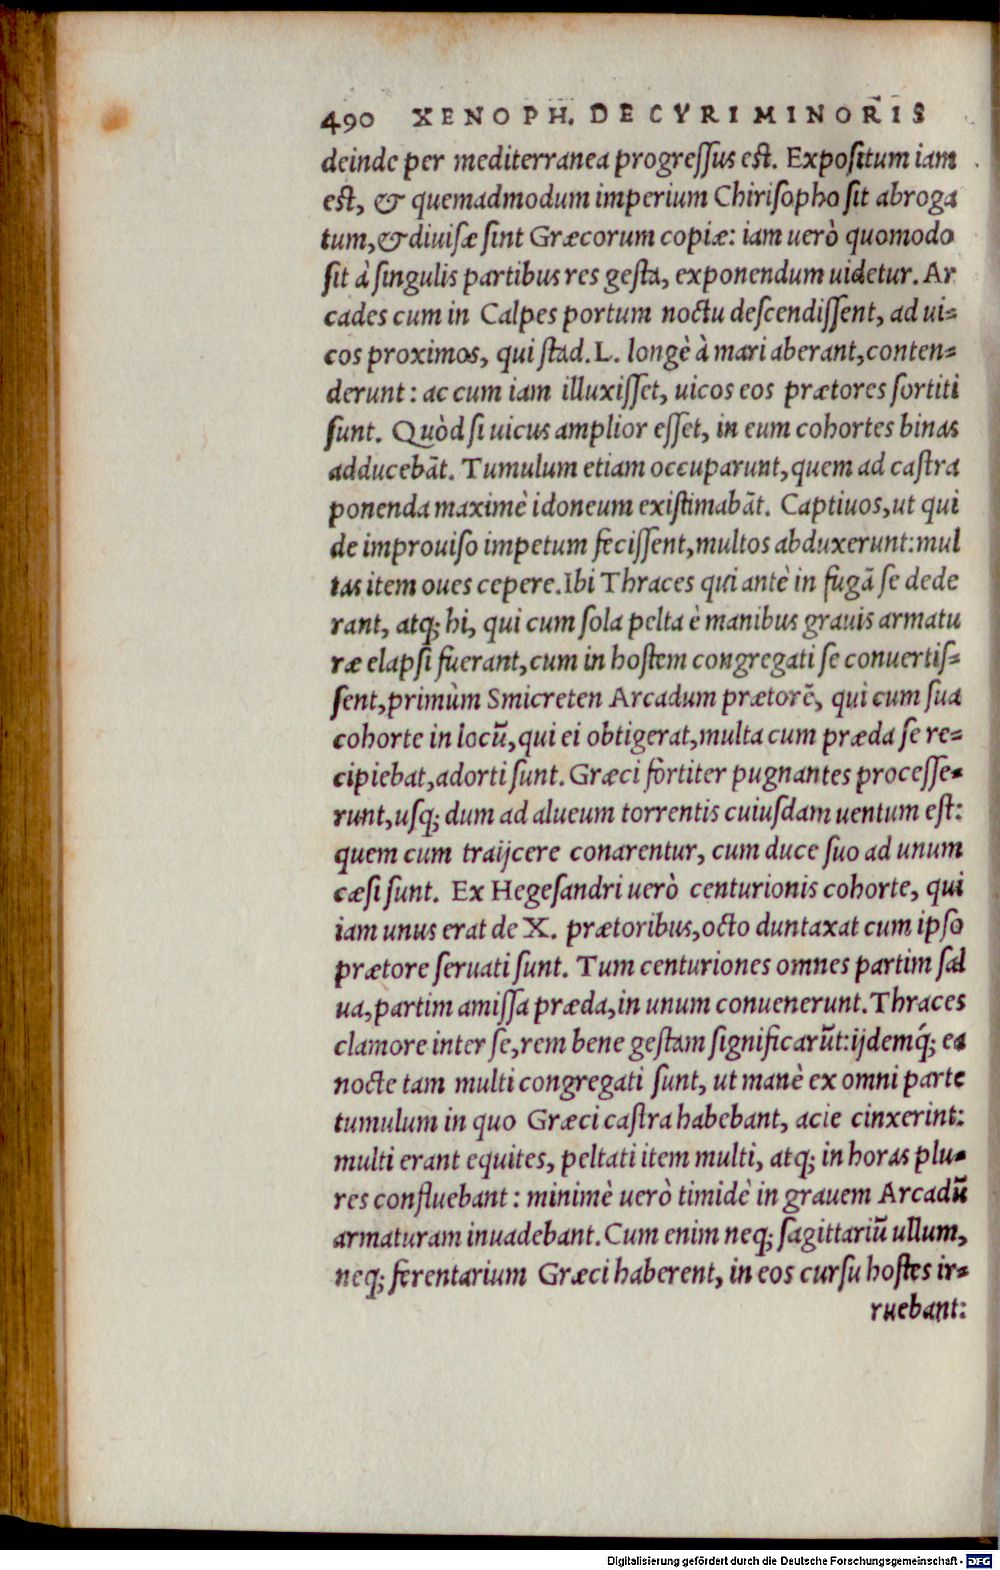 490 XENOPH. DE CYRI MINORIS
deinde per mediterranea progreſſus eſt. Expoſitum iam
eſt, & quemadmodum imperium Chiriſopho ſit abroga
tum, & diuiſæ ſint Græcorum copiæ: iam uerò quomodo
ſit à ſingulis partibus res geſta, exponendum uidetur. Ar
cades cum in Calpes portum noctu deſcendiſſent, ad ui=
cos proximos, qui ſtad. L. longè à mari aberant, conten=
derunt: ac cum iam illuxiſſet, uicos eos prætores ſortiti
ſunt. Quòd ſi uicus amplior eſſet, in eum cohortes binas
adducebãt. Tumulum etiam occuparunt, quem ad caſtra
ponenda maximè idoneum exiſtimabãt. Captiuos, ut qui
de improuiſo impetum feciſſent, multos abduxerunt: mul
tas item oues cepere. Ibi Thraces qui antè in fugã ſe dede
rant, atq; hi, qui cum ſola pelta è manibus grauis armatu
ræ elapſi fuerant, cum in hoſtem congregati ſe conuertiſ=
ſent, primùm Smicreten Arcadum prætorẽ, qui cum ſua
cohorte in locũ, qui ei obtigerat, multa cum præda ſe re=
cipiebat, adorti ſunt. Græci fortiter pugnantes proceſſe=
runt, uſq; dum ad alueum torrentis cuiuſdam uentum eſt:
quem cum traijcere conarentur, cum duce ſuo ad unum
cæſi ſunt. Ex Hegeſandri uerò centurionis cohorte, qui
iam unus erat de X. prætoribus, octo duntaxat cum ipſo
prætore ſeruati ſunt. Tum centuriones omnes partim ſal
ua, partim amiſſa præda, in unum conuenerunt. Thraces
clamore inter ſe, rem bene geſtam ſignificarũt: ijdemq́; ea
nocte tam multi congregati ſunt, ut manè ex omni parte
tumulum in quo Græci caſtra habebant, acie cinxerint:
multi erant equites, peltati item multi, atq; in horas plu=
res confluebant: minimè uerò timidè in grauem Arcadũ
armaturam inuadebant. Cum enim neq; ſagittariũ ullum,
neq; ferentarium Græci haberent, in eos curſu hoſtes ir=
ruebant:
Digitalisierung gefördert durch die Deutsche Forschungsgemeinschaft - DFG